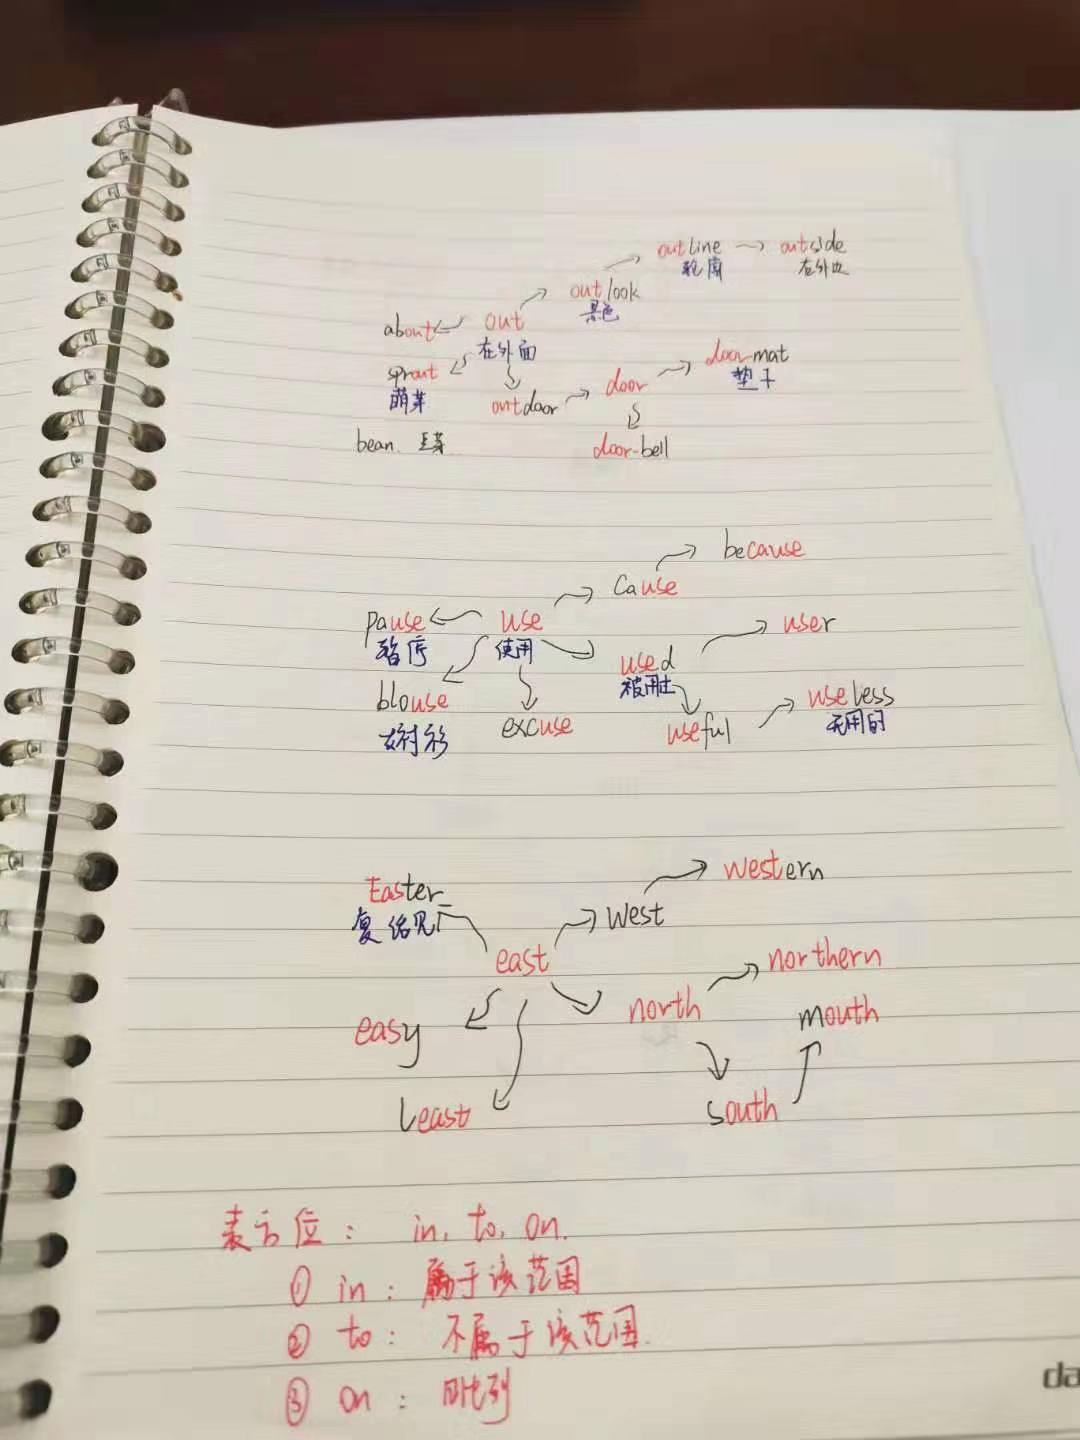 outline → outside
轮廓 在外边
out look
景色
about out
在外面
sprout door door-mat
萌芽 垫子
outdoor
bean. 豆芽 door-bell
because
cause
pause use user
暂停 使用 used
被用过
blouse useless
女衬衫 excuse useful 无用的
western
Easter West
复活见
east northern
north mouth
easy
least south
表方位: in, to, on.
① in: 属于该范围
② to: 不属于该范围.
③ on:
da